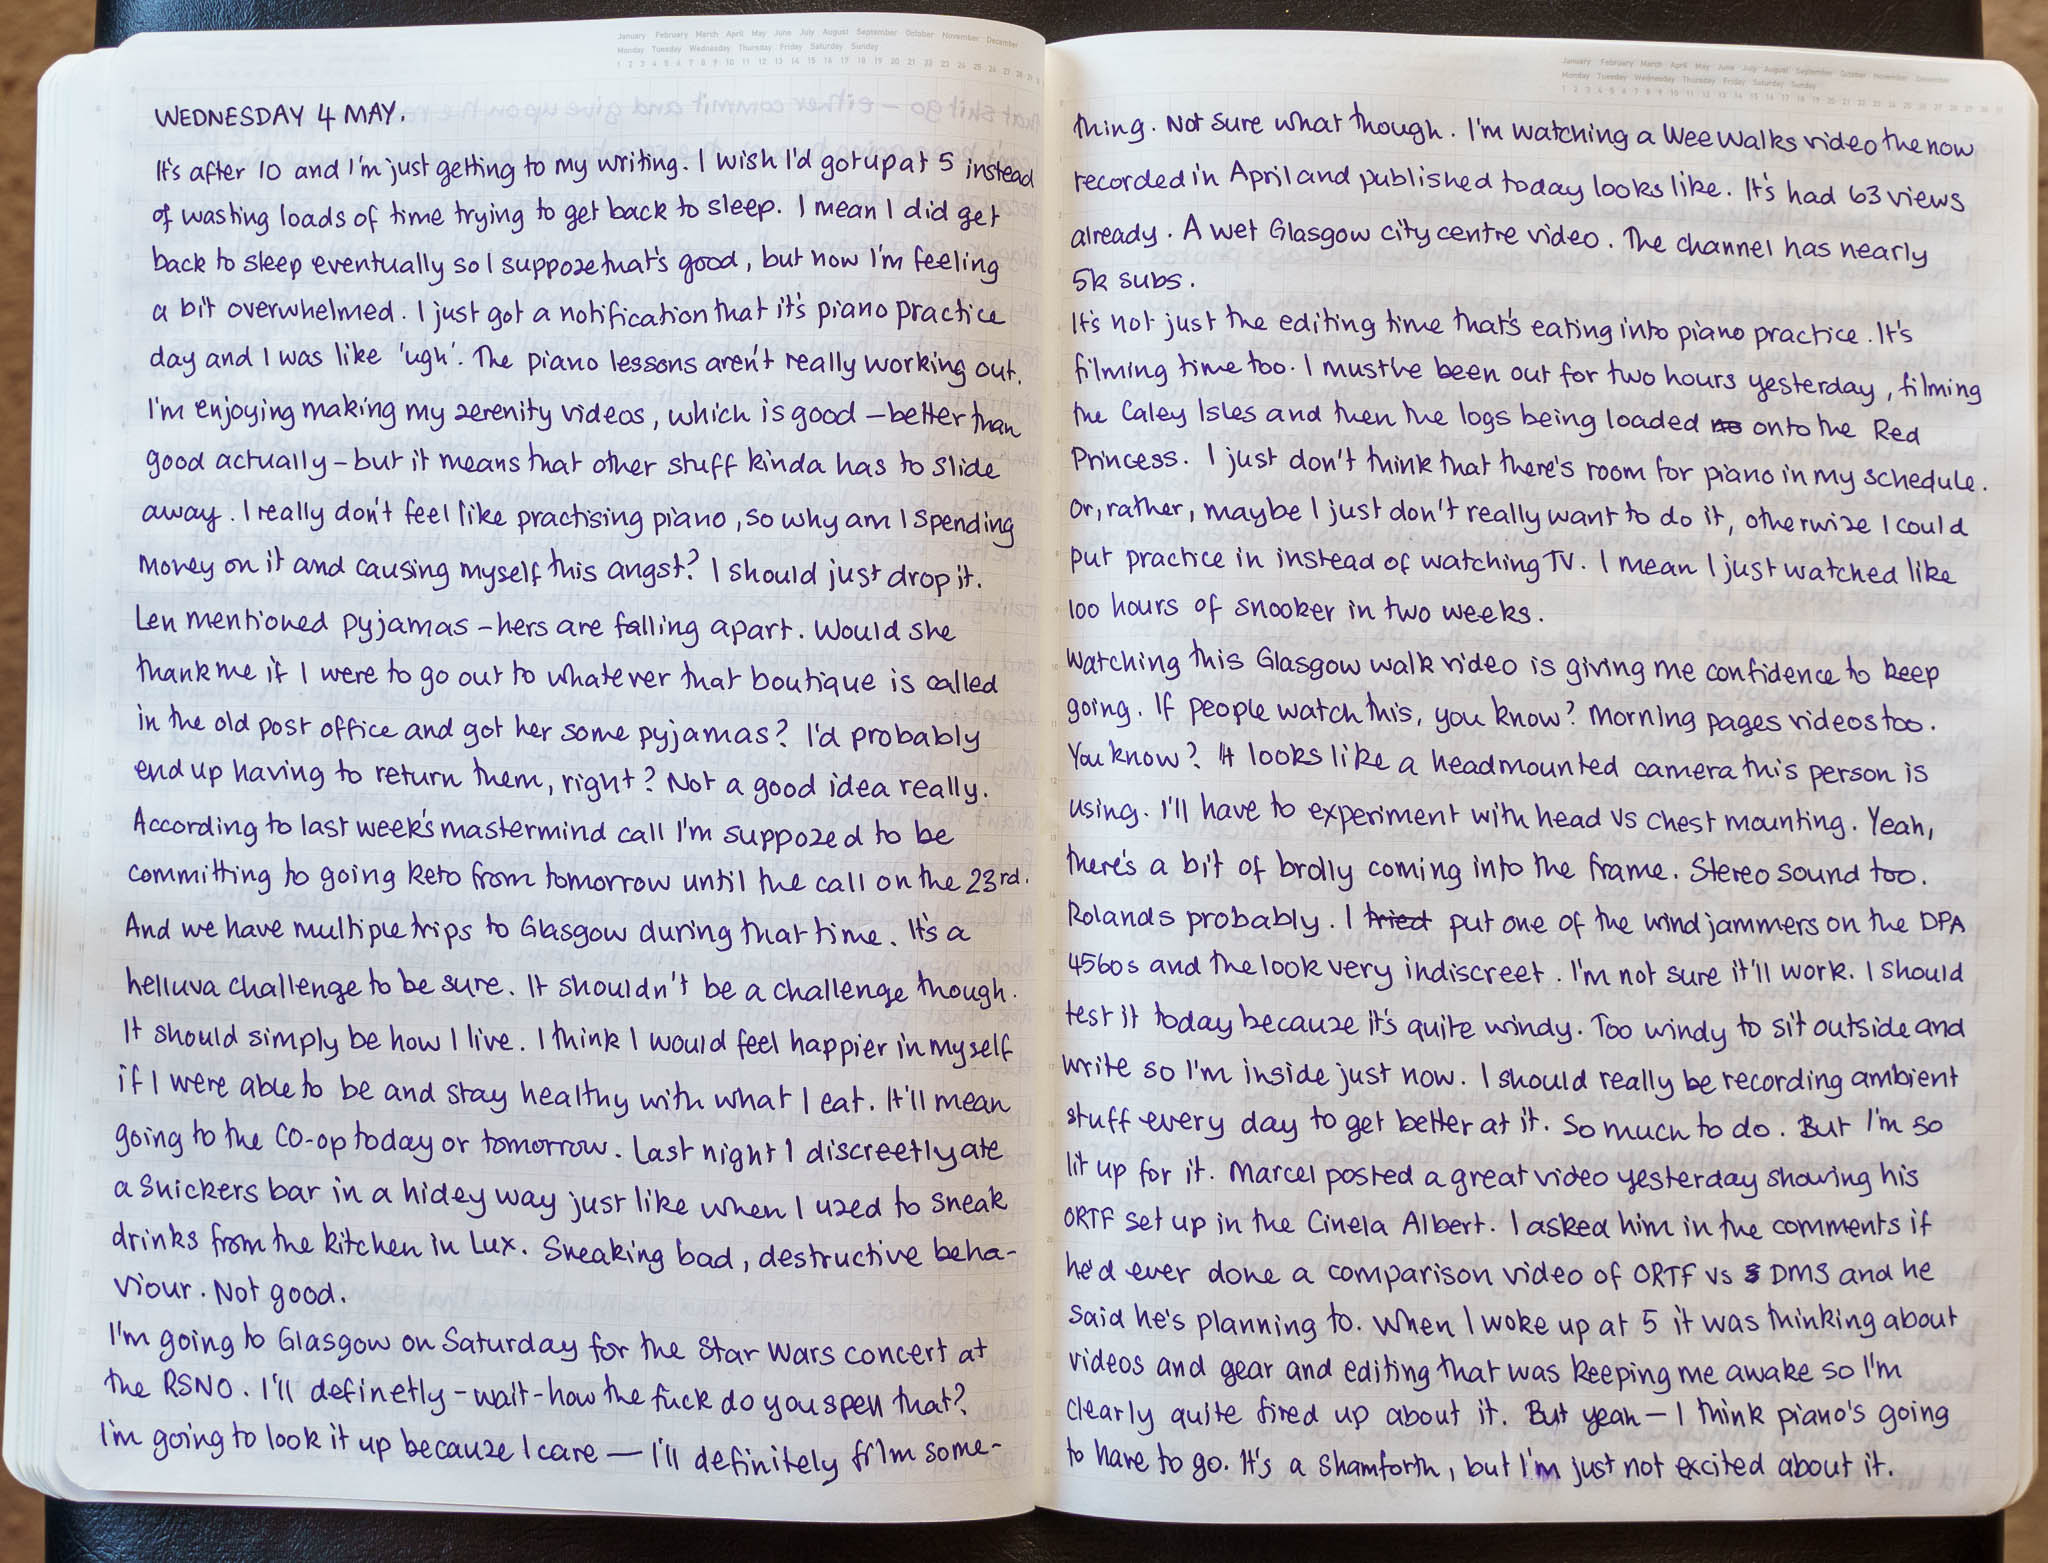 January February March April May June July August September October November December
Monday Tuesday Wednesday Thursday Friday Saturday Sunday
WEDNESDAY 4 MAY.
It's after 10 and I'm just getting to my writing. I wish I'd got up at 5 instead
of wasting loads of time trying to get back to sleep. I mean I did get
back to sleep eventually so I suppoze that's good, but now I'm feeling
a bit overwhelmed. I just got a notification that it's piano practice
day and I was like 'ugh'. The piano lessons aren't really working out.
I'm enjoying making my zerenity videos, which is good – better than
good actually – but it means that other stuff kinda has to slide
away. I really don't feel like practising piano, so why am I spending
money on it and causing myself this angst? I should just drop it.
Len mentioned pyjamas – hers are falling apart. Would she
thank me if I were to go out to whatever that boutique is called
in the old post office and got her some pyjamas? I'd probably
end up having to return them, right? Not a good idea really.
According to last week's mastermind call I'm suppozed to be
committing to going keto from tomorrow until the call on the 23rd.
And we have multiple trips to Glasgow during that time. It's a
helluva challenge to be sure. It shouldn't be a challenge though.
It should simply be how I live. I think I would feel happier in myself
if I were able to be and stay healthy with what I eat. It'll mean
going to the CO-op today or tomorrow. Last night I discreetly ate
a Snickers bar in a hidey way just like when I uzed to sneak
drinks from the kitchen in Lux. Sneaking bad, destructive beha-
viour. Not good.
I'm going to Glasgow on Saturday for the Star Wars concert at
the RSNO. I'll definetly – wait – how the fuck do you spell that?
I'm going to look it up becauze I care — I'll definitely film some-
January February March April May June July August September October November December
Monday Tuesday Wednesday Thursday Friday Saturday Sunday
thing. Not sure what though. I'm watching a Wee Walks video the now
recorded in April and published today looks like. It's had 63 views
already. A wet Glasgow city centre video. The channel has nearly
5k subs.
It's not just the editing time that's eating into piano practice. It's
filming time too. I must've been out for two hours yesterday, filming
the Caley Isles and then the logs being loaded onto the Red
Princess. I just don't think that there's room for piano in my schedule.
Or, rather, maybe I just don't really want to do it, otherwize I could
put practice in instead of watching TV. I mean I just watched like
100 hours of snooker in two weeks.
Watching this Glasgow walk video is giving me confidence to keep
going. If people watch this, you know? Morning pages videos too.
You know? It looks like a headmounted camera this person is
using. I'll have to experiment with head vs chest mounting. Yeah,
there's a bit of brolly coming into the frame. Stereo sound too.
Rolands probably. I tried put one of the windjammers on the DPA
4560s and the look very indiscreet. I'm not sure it'll work. I should
test it today becauze it's quite windy. Too windy to sit outside and
write so I'm inside just now. I should really be recording ambient
stuff every day to get better at it. So much to do. But I'm so
lit up for it. Marcel posted a great video yesterday showing his
ORTF set up in the Cinela Albert. I asked him in the comments if
he'd ever done a comparison video of ORTF vs DMS and he
said he's planning to. When I woke up at 5 it was thinking about
videos and gear and editing that was keeping me awake so I'm
clearly quite fired up about it. But yeah — I think piano's going
to have to go. It's a shamforth, but I'm just not excited about it.